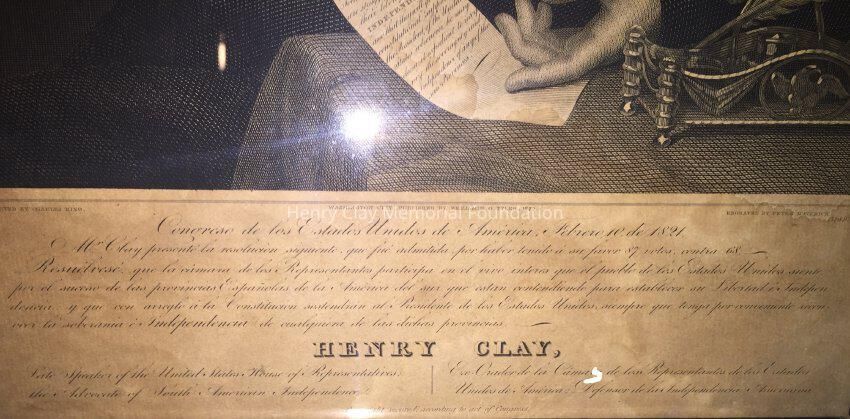 INDEPEND
PAINTED BY CHARLES KING.
WASHINGTON CITY, PUBLISHED BY
ENGRAVED BY PETER MAVERICK
Henry Clay Memorial Foundation
Congreso de los Estados Unidos de América, Febrero 10 de 1821
Mr. Clay presentó la resolucion siguiente, que fué admitida por haber tenido á su favor 87 votos, contra 68 —
Resuélvese, que la cámara de los Representantes participa en el vivo interes que el pueblo de los Estados Unidos siente
por el suceso de las provincias Españolas de la América del sur que estan contendiendo para establecer su Libertad é Indepen
dencia, y que con arreglo á la Constitucion sostendrán al Presidente de los Estados Unidos, siempre que tenga por conveniente recon
ocer la soberania é Independencia de cualquiera de las dichas provincias. —
HENRY CLAY,
Late Speaker of the United States House of Representatives;
the Advocate of South American Independence.
Exc Orador de la Camara de los Representantes de los Estados
Unidos de América; Defensor de la Independencia Americana
right secured according to act of Congress.